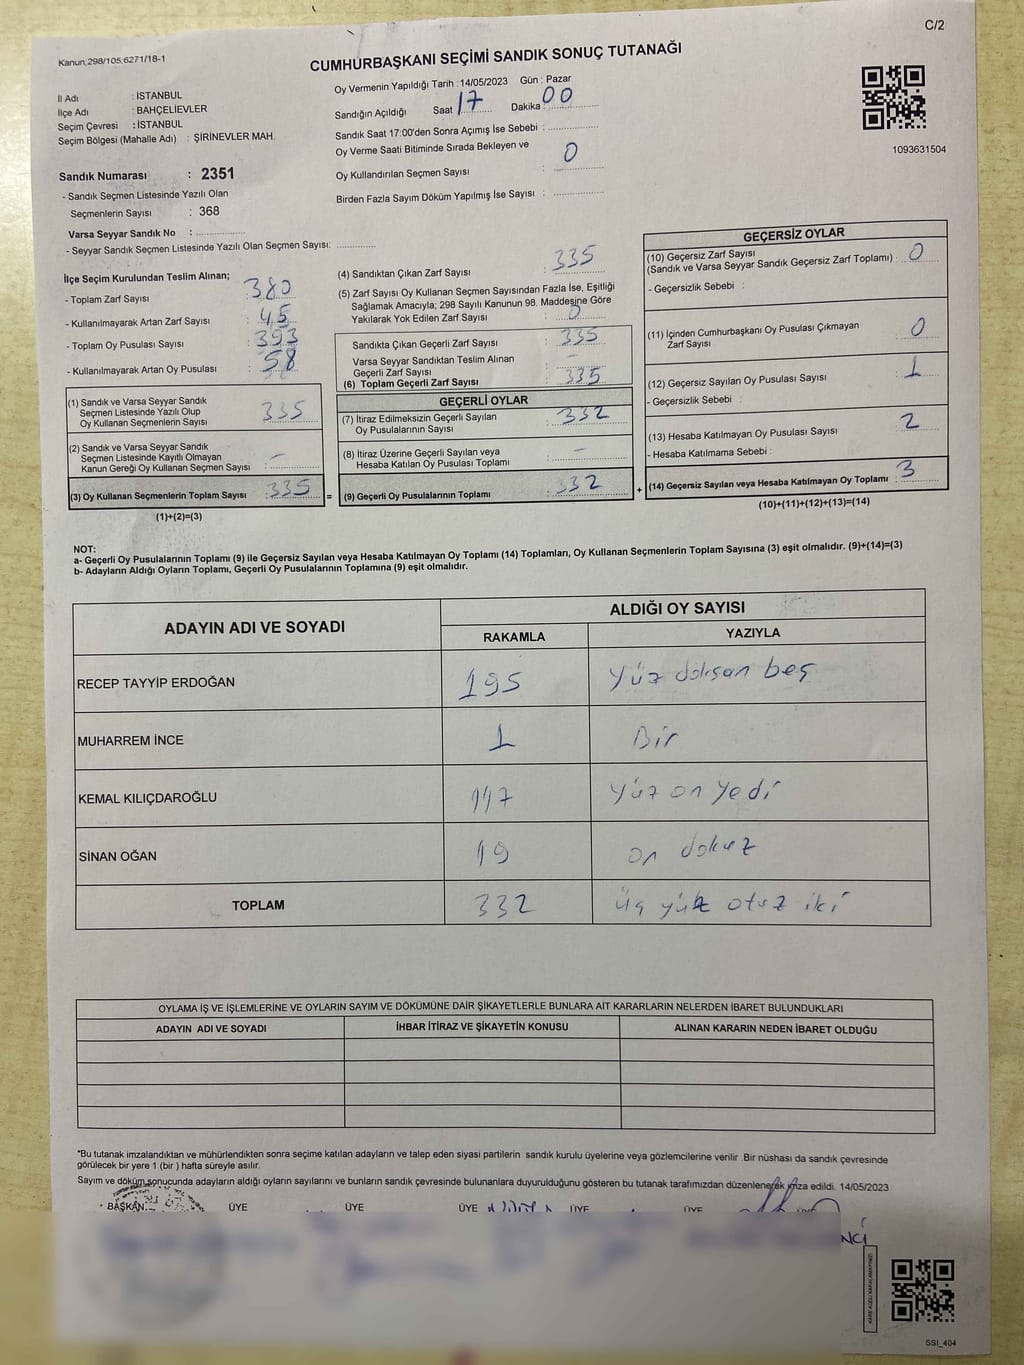 C/2
Kanun;298/105;6271/18-1
CUMHURBAŞKANI SEÇİMİ SANDIK SONUÇ TUTANAĞI
İl Adı : İSTANBUL
İlçe Adı : BAHÇELİEVLER
Seçim Çevresi : İSTANBUL
Seçim Bölgesi (Mahalle Adı) : ŞİRİNEVLER MAH.
Oy Vermenin Yapıldığı Tarih :14/05/2023 Gün : Pazar
Sandığın Açıldığı Saat 17 Dakika : 00
Sandık Saat 17:00'den Sonra Açımış İse Sebebi :
Oy Verme Saati Bitiminde Sırada Bekleyen ve
Oy Kullandırılan Seçmen Sayısı : 0
Birden Fazla Sayım Döküm Yapılmış İse Sayısı :
1093631504
Sandık Numarası : 2351
- Sandık Seçmen Listesinde Yazılı Olan
Seçmenlerin Sayısı : 368
Varsa Seyyar Sandık No :
- Seyyar Sandık Seçmen Listesinde Yazılı Olan Seçmen Sayısı:
İlçe Seçim Kurulundan Teslim Alınan;
- Toplam Zarf Sayısı : 380
- Kullanılmayarak Artan Zarf Sayısı : 45
- Toplam Oy Pusulası Sayısı : 393
- Kullanılmayarak Artan Oy Pusulası : 58
(1) Sandık ve Varsa Seyyar Sandık
Seçmen Listesinde Yazılı Olup
Oy Kullanan Seçmenlerin Sayısı : 335
(2) Sandık ve Varsa Seyyar Sandık
Seçmen Listesinde Kayıtlı Olmayan
Kanun Gereği Oy Kullanan Seçmen Sayısı : -
(3) Oy Kullanan Seçmenlerin Toplam Sayısı : 335
(1)+(2)=(3)
(4) Sandıktan Çıkan Zarf Sayısı : 335
(5) Zarf Sayısı Oy Kullanan Seçmen Sayısından Fazla İse, Eşitliği
Sağlamak Amacıyla; 298 Sayılı Kanunun 98. Maddesine Göre
Yakılarak Yok Edilen Zarf Sayısı : 0
Sandıkta Çıkan Geçerli Zarf Sayısı : 335
Varsa Seyyar Sandıktan Teslim Alınan
Geçerli Zarf Sayısı : -
(6) Toplam Geçerli Zarf Sayısı : 335
GEÇERLİ OYLAR
(7) İtiraz Edilmeksizin Geçerli Sayılan
Oy Pusulalarının Sayısı : 332
(8) İtiraz Üzerine Geçerli Sayılan veya
Hesaba Katılan Oy Pusulası Toplamı : -
= (9) Geçerli Oy Pusulalarının Toplamı : 332
GEÇERSİZ OYLAR
(10) Geçersiz Zarf Sayısı
(Sandık ve Varsa Seyyar Sandık Geçersiz Zarf Toplamı) : 0
- Geçersizlik Sebebi :
(11) İçinden Cumhurbaşkanı Oy Pusulası Çıkmayan
Zarf Sayısı : 0
(12) Geçersiz Sayılan Oy Pusulası Sayısı : 1
- Geçersizlik Sebebi :
(13) Hesaba Katılmayan Oy Pusulası Sayısı : 2
- Hesaba Katılmama Sebebi :
+ (14) Geçersiz Sayılan veya Hesaba Katılmayan Oy Toplamı : 3
(10)+(11)+(12)+(13)=(14)
NOT:
a- Geçerli Oy Pusulalarının Toplamı (9) ile Geçersiz Sayılan veya Hesaba Katılmayan Oy Toplamı (14) Toplamları, Oy Kullanan Seçmenlerin Toplam Sayısına (3) eşit olmalıdır. (9)+(14)=(3)
b- Adayların Aldığı Oyların Toplamı, Geçerli Oy Pusulalarının Toplamına (9) eşit olmalıdır.
ADAYIN ADI VE SOYADI ALDIĞI OY SAYISI
RAKAMLA YAZIYLA
RECEP TAYYİP ERDOĞAN 195 Yüz doksan beş
MUHARREM İNCE 1 Bir
KEMAL KILIÇDAROĞLU 117 Yüz on yedi
SİNAN OĞAN 19 on dokuz
TOPLAM 332 üç yüz otuz iki
OYLAMA İŞ VE İŞLEMLERİNE VE OYLARIN SAYIM VE DÖKÜMÜNE DAİR ŞİKAYETLERLE BUNLARA AİT KARARLARIN NELERDEN İBARET BULUNDUKLARI
ADAYIN ADI VE SOYADI İHBAR İTİRAZ VE ŞİKAYETİN KONUSU ALINAN KARARIN NEDEN İBARET OLDUĞU
*Bu tutanak imzalandıktan ve mühürlendikten sonra seçime katılan adayların ve talep eden siyasi partilerin sandık kurulu üyelerine veya gözlemcilerine verilir .Bir nüshası da sandık çevresinde
görülecek bir yere 1 (bir ) hafta süreyle asılır.
Sayım ve döküm sonucunda adayların aldığı oyların sayılarını ve bunların sandık çevresinde bulunanlara duyurulduğunu gösteren bu tutanak tarafımızdan düzenlenerek imza edildi. 14/05/2023
BAŞKAN ÜYE ÜYE ÜYE ÜYE ÜYE ÜYE
NCİ
SSİ_404